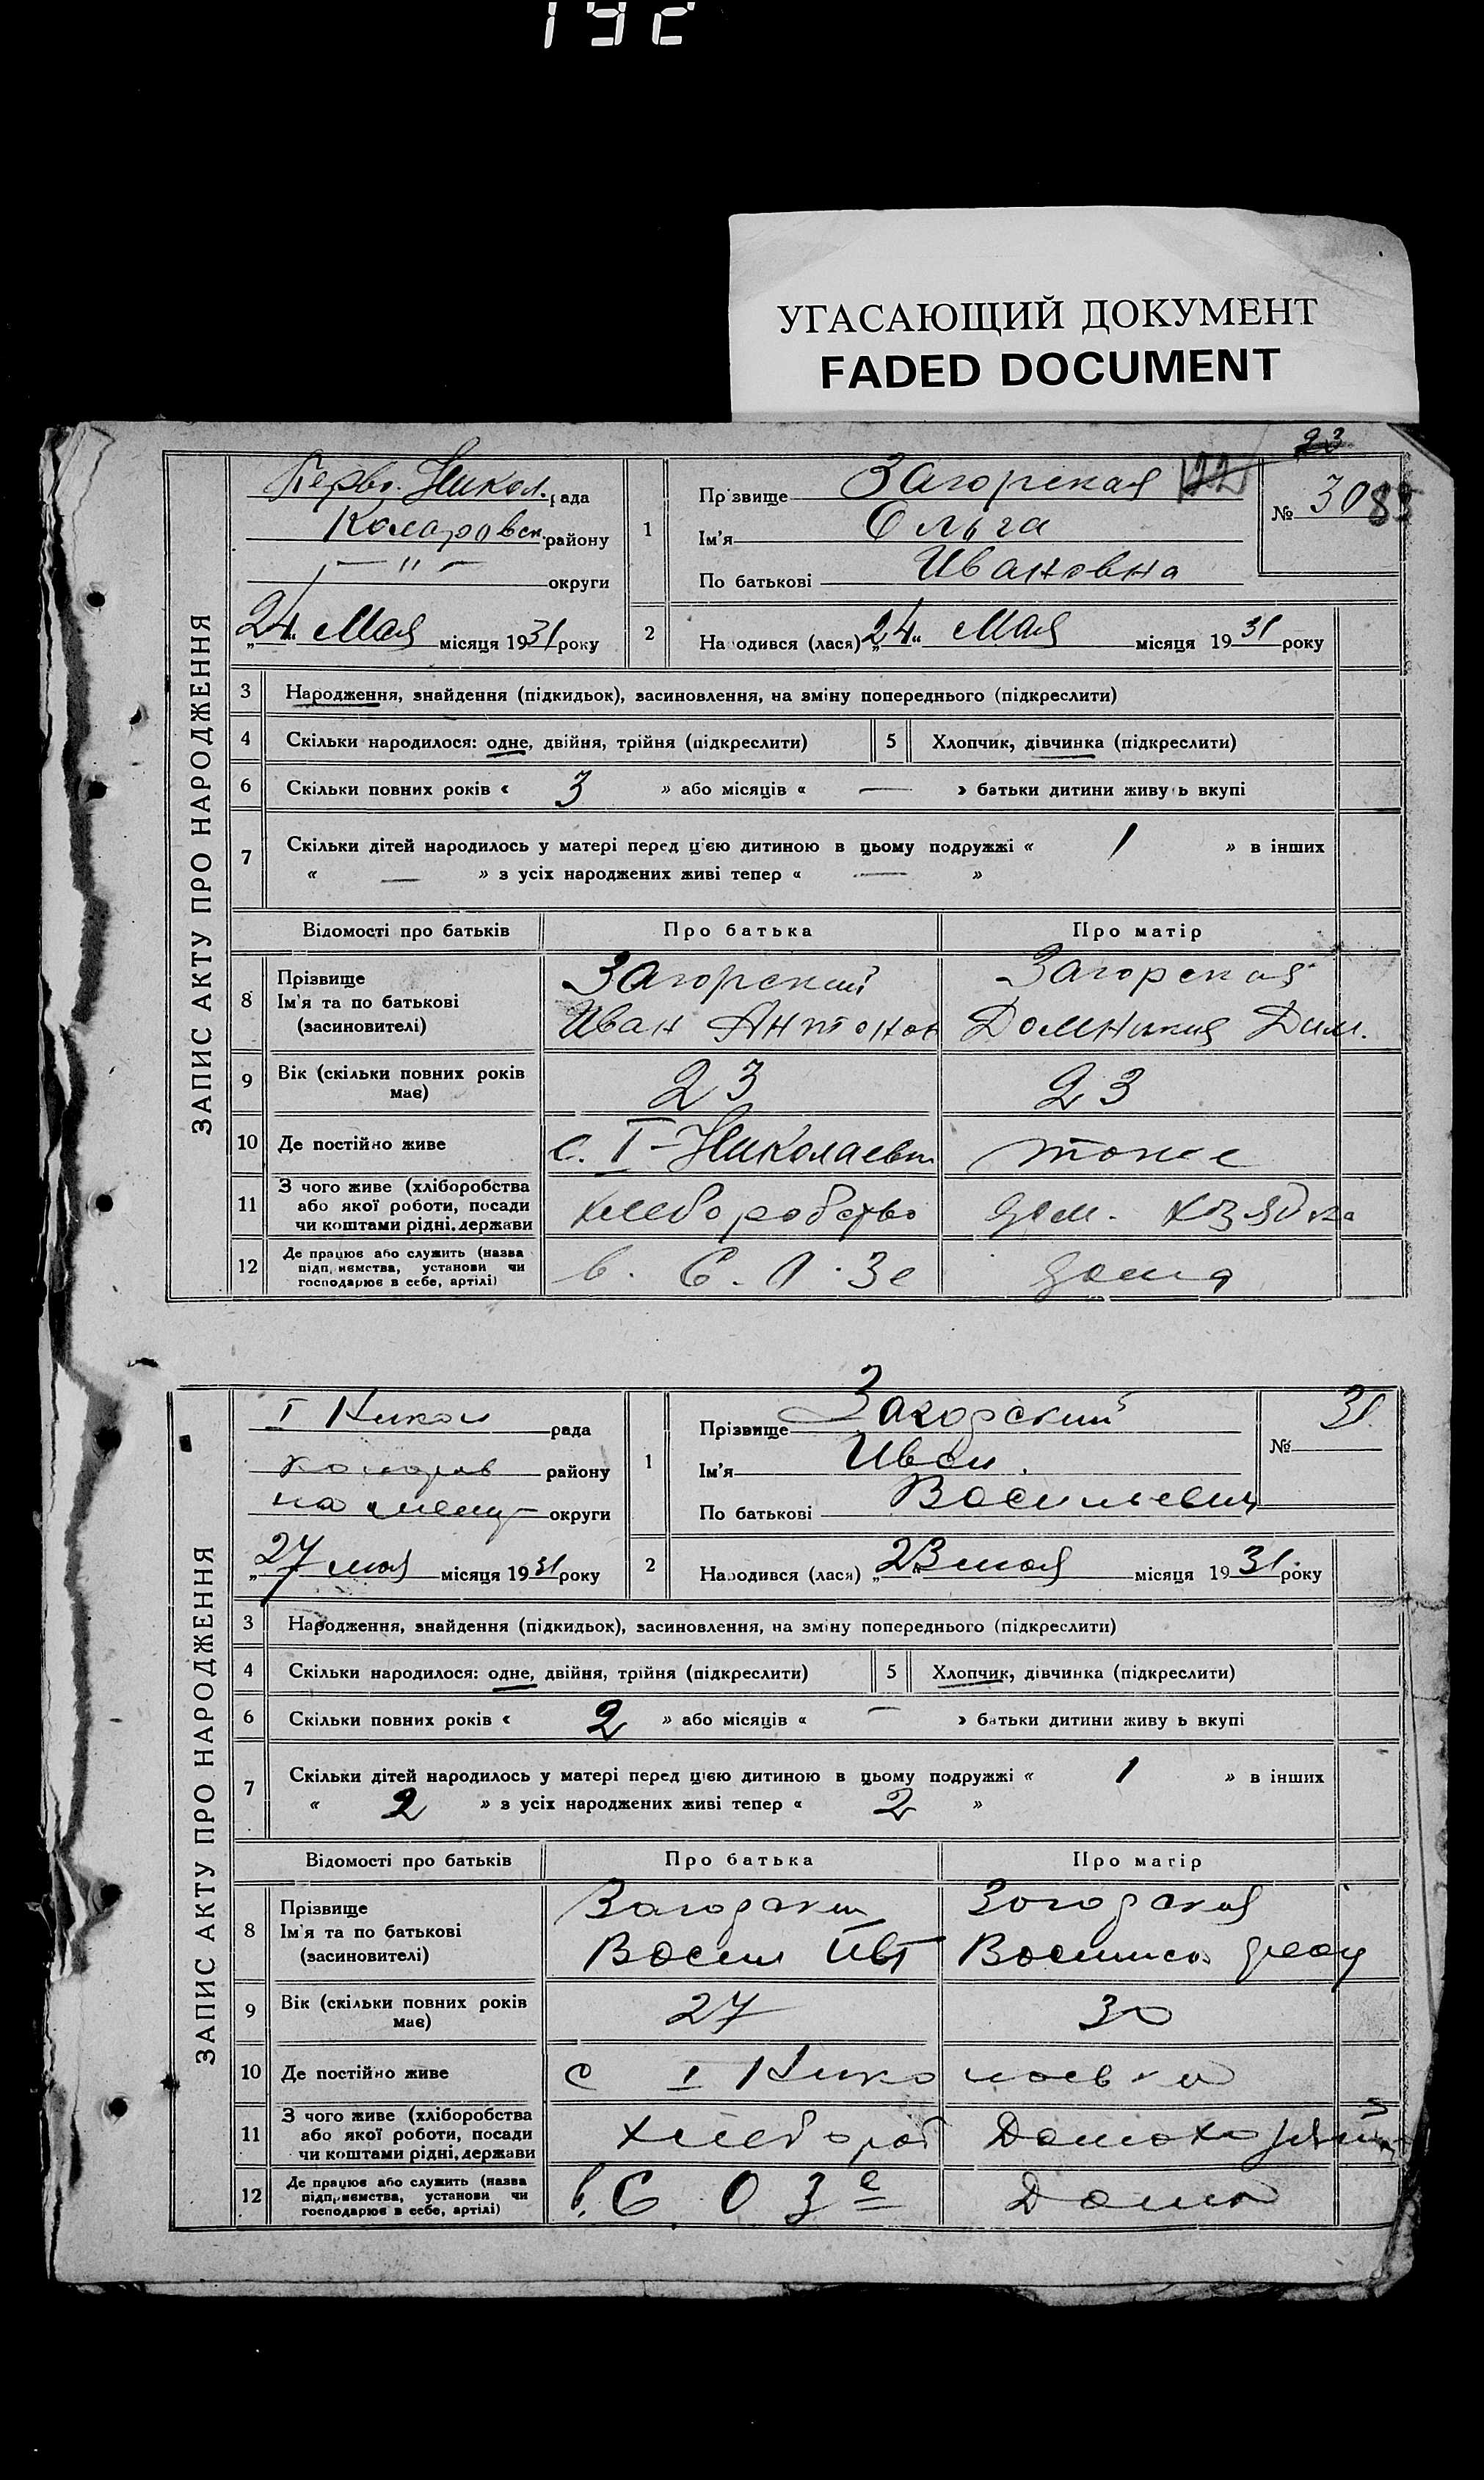 192
УГАСАЮЩИЙ ДОКУМЕНТ
FADED DOCUMENT
23
ЗАПИС АКТУ ПРО НАРОДЖЕННЯ
Перво. Никол. рада
Коларовск. району
— " — округи
„24“ Мая місяця 1931 року
1 Прізвище Загорская 122
Ім'я Ольга
По батькові Ивановна
№ 30 83
2 Народився (лася) „24“ Мая місяця 1931 року
3 Народження, знайдення (підкидьок), засиновлення, на зміну попереднього (підкреслити)
4 Скільки народилося: одне, двійня, трійня (підкреслити) 5 Хлопчик, дівчинка (підкреслити)
6 Скільки повних років « 3 » або місяців « — » батьки дитини живуть вкупі
7 Скільки дітей народилось у матері перед цією дитиною в цьому подружжі « 1 » в інших
« — » з усіх народжених живі тепер « — »
Відомості про батьків Про батька Про матір
8 Прізвище Загорский Загорская
Ім'я та по батькові
(засиновителі) Иван Антонов Домникия Дим.
9 Вік (скільки повних років має) 23 23
10 Де постійно живе с. I-Николаевк тоже
11 З чого живе (хліборобства
або якої роботи, посади
чи коштами рідні, держави хлеборобство дом. хзяйка
12 Де працює або служить (назва
підприємства, установи чи
господарює в себе, артілі) в. С. О. Зе дома
ЗАПИС АКТУ ПРО НАРОДЖЕННЯ
I Никол рада
Коларов району
округи
„27 мая місяця 1931 року
1 Прізвище Загорский
Ім'я Иван.
По батькові Васильевич
№ 31
2 Народився (лася) „23 мая місяця 1931 року
3 Народження, знайдення (підкидьок), засиновлення, на зміну попереднього (підкреслити)
4 Скільки народилося: одне, двійня, трійня (підкреслити) 5 Хлопчик, дівчинка (підкреслити)
6 Скільки повних років « 2 » або місяців « — » батьки дитини живуть вкупі
7 Скільки дітей народилось у матері перед цією дитиною в цьому подружжі « 1 » в інших
« 2 » з усіх народжених живі тепер « 2 »
Відомості про батьків Про батька Про матір
8 Прізвище Загорский Загорская
Ім'я та по батькові
(засиновителі) Васил
9 Вік (скільки повних років має) 27 30
10 Де постійно живе с I Николаевка
11 З чого живе (хліборобства
або якої роботи, посади
чи коштами рідні, держави хлебороб Домохозяйка
12 Де працює або служить (назва
підприємства, установи чи
господарює в себе, артілі) в. С О Зе Дома